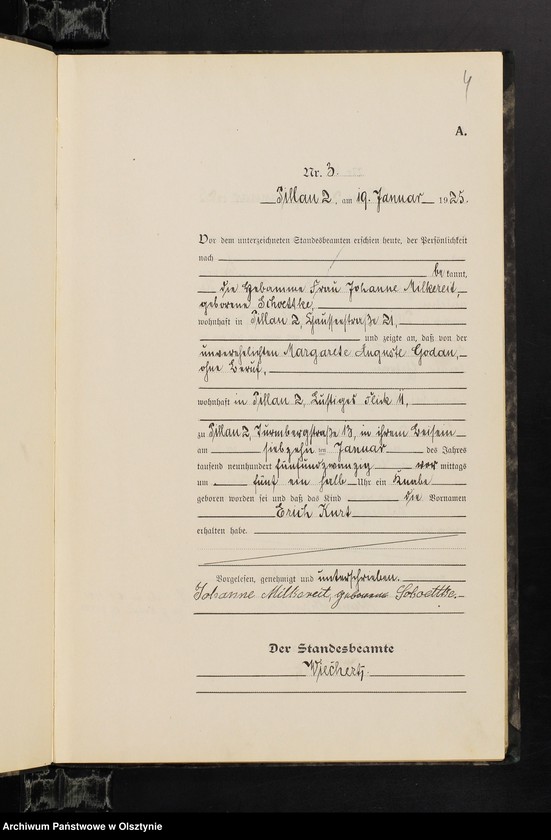 4
A.
Nr. 3.
Pillau 2, am 19. Januar 1925.
Vor dem unterzeichneten Standesbeamten erschien heute, der Persönlichkeit
nach
be kannt,
die Hebamme Frau Johanne Milkereit,
geborene Schoettke,
wohnhaft in Pillau 2, Chausseestraße 21,
und zeigte an, daß von der
unverehelichten Margarete Auguste Godau,
ohne Beruf,
wohnhaft in Pillau 2, Lustiges Flick 11,
zu Pillau 2, Turmbergstraße 13, in ihrem Beisein
am siebzehn ten Januar des Jahres
tausend neunhundert fünfundzwanzig vor mittags
um fünf ein halb Uhr ein Knabe
geboren worden sei und daß das Kind die Vornamen
Erich Kurt
erhalten habe.
Vorgelesen, genehmigt und unterschrieben.
Johanne Milkereit, geborene Schoettke.
Der Standesbeamte
Wiechert
Archiwum Państwowe w Olsztynie